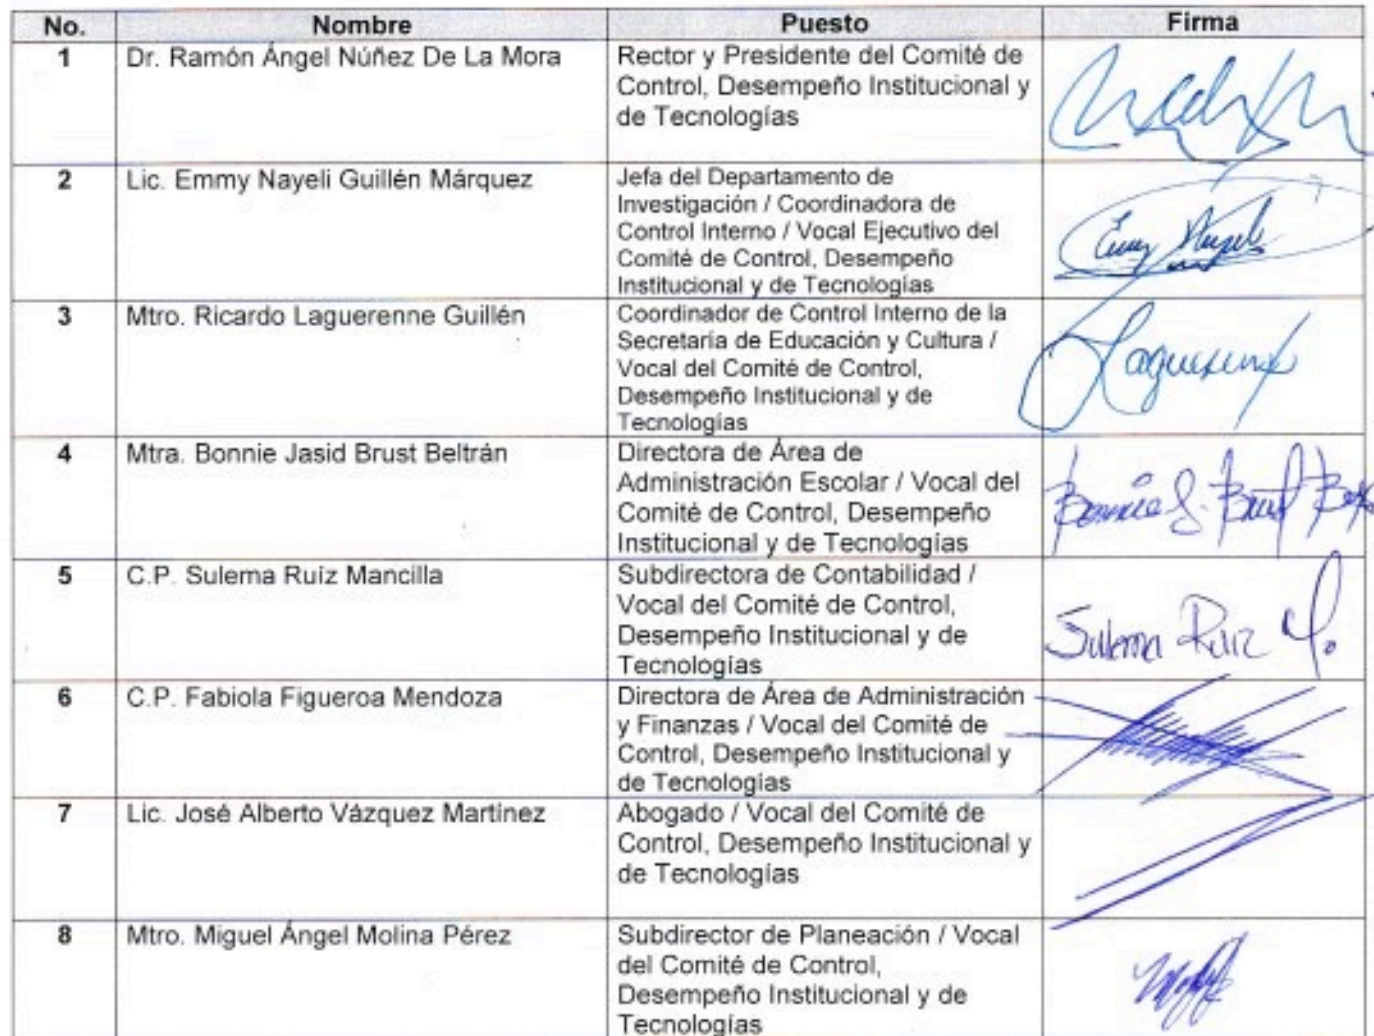 No. Nombre Puesto Firma
1 Dr. Ramón Ángel Núñez De La Mora Rector y Presidente del Comité de
Control, Desempeño Institucional y
de Tecnologías
2 Lic. Emmy Nayeli Guillén Márquez Jefa del Departamento de
Investigación / Coordinadora de
Control Interno / Vocal Ejecutivo del
Comité de Control, Desempeño
Institucional y de Tecnologías
Emmy Nayeli
3 Mtro. Ricardo Laguerenne Guillén Coordinador de Control Interno de la
Secretaría de Educación y Cultura /
Vocal del Comité de Control,
Desempeño Institucional y de
Tecnologías
4 Mtra. Bonnie Jasid Brust Beltrán Directora de Área de
Administración Escolar / Vocal del
Comité de Control, Desempeño
Institucional y de Tecnologías
Bonnie J. Brust
5 C.P. Sulema Ruíz Mancilla Subdirectora de Contabilidad /
Vocal del Comité de Control,
Desempeño Institucional y de
Tecnologías
Sulema Ruiz M.
6 C.P. Fabiola Figueroa Mendoza Directora de Área de Administración
y Finanzas / Vocal del Comité de
Control, Desempeño Institucional y
de Tecnologías
7 Lic. José Alberto Vázquez Martínez Abogado / Vocal del Comité de
Control, Desempeño Institucional y
de Tecnologías
8 Mtro. Miguel Ángel Molina Pérez Subdirector de Planeación / Vocal
del Comité de Control,
Desempeño Institucional y de
Tecnologías